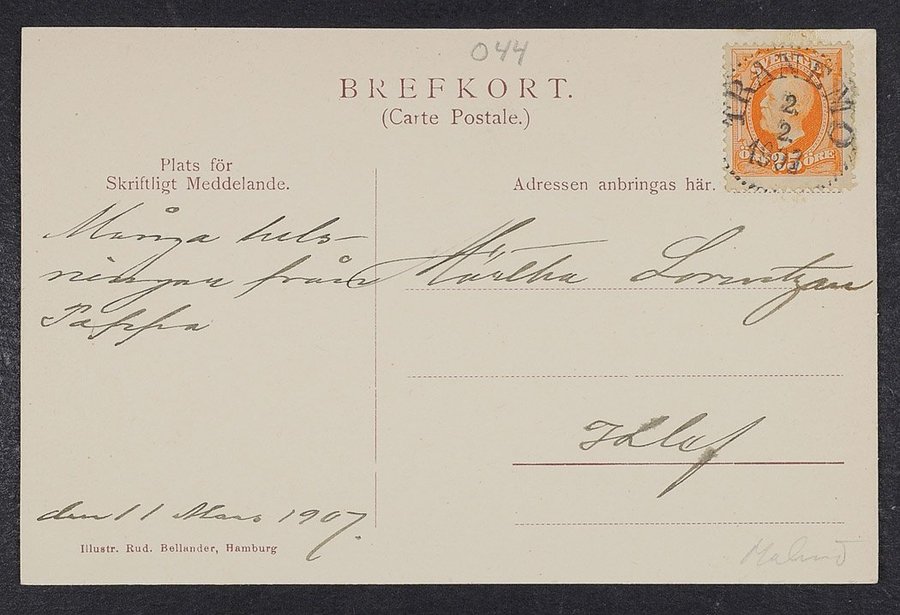 044
BREFKORT.
(Carte Postale.)
SVERIGE
25
ÖRE
TRANEMO
2.
2.
Plats för
Skriftligt Meddelande.
Adressen anbringas här.
Många hels-
ningar från
Pappa
Märtha Lorentzen
den 11 Mars 1907.
Illustr. Rud. Bellander, Hamburg